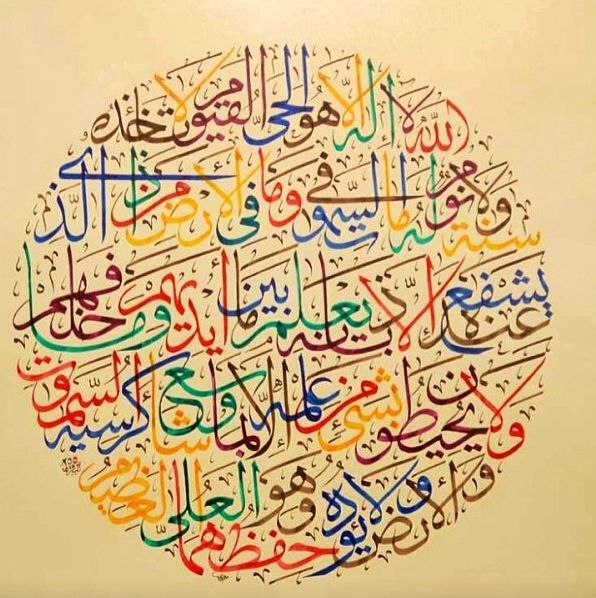 الله لا اله الا هو الحي القيوم لا تأخذه
سنة ولا نوم له ما في السموات وما في الأرض من ذا الذي
يشفع عنده إلا بإذنه يعلم ما بين أيديهم وما خلفهم
ولا يحيطون بشئ من علمه إلا بما شاء وسع كرسيه السموات
والأرض ولا يؤده حفظهما وهو العلي العظيم